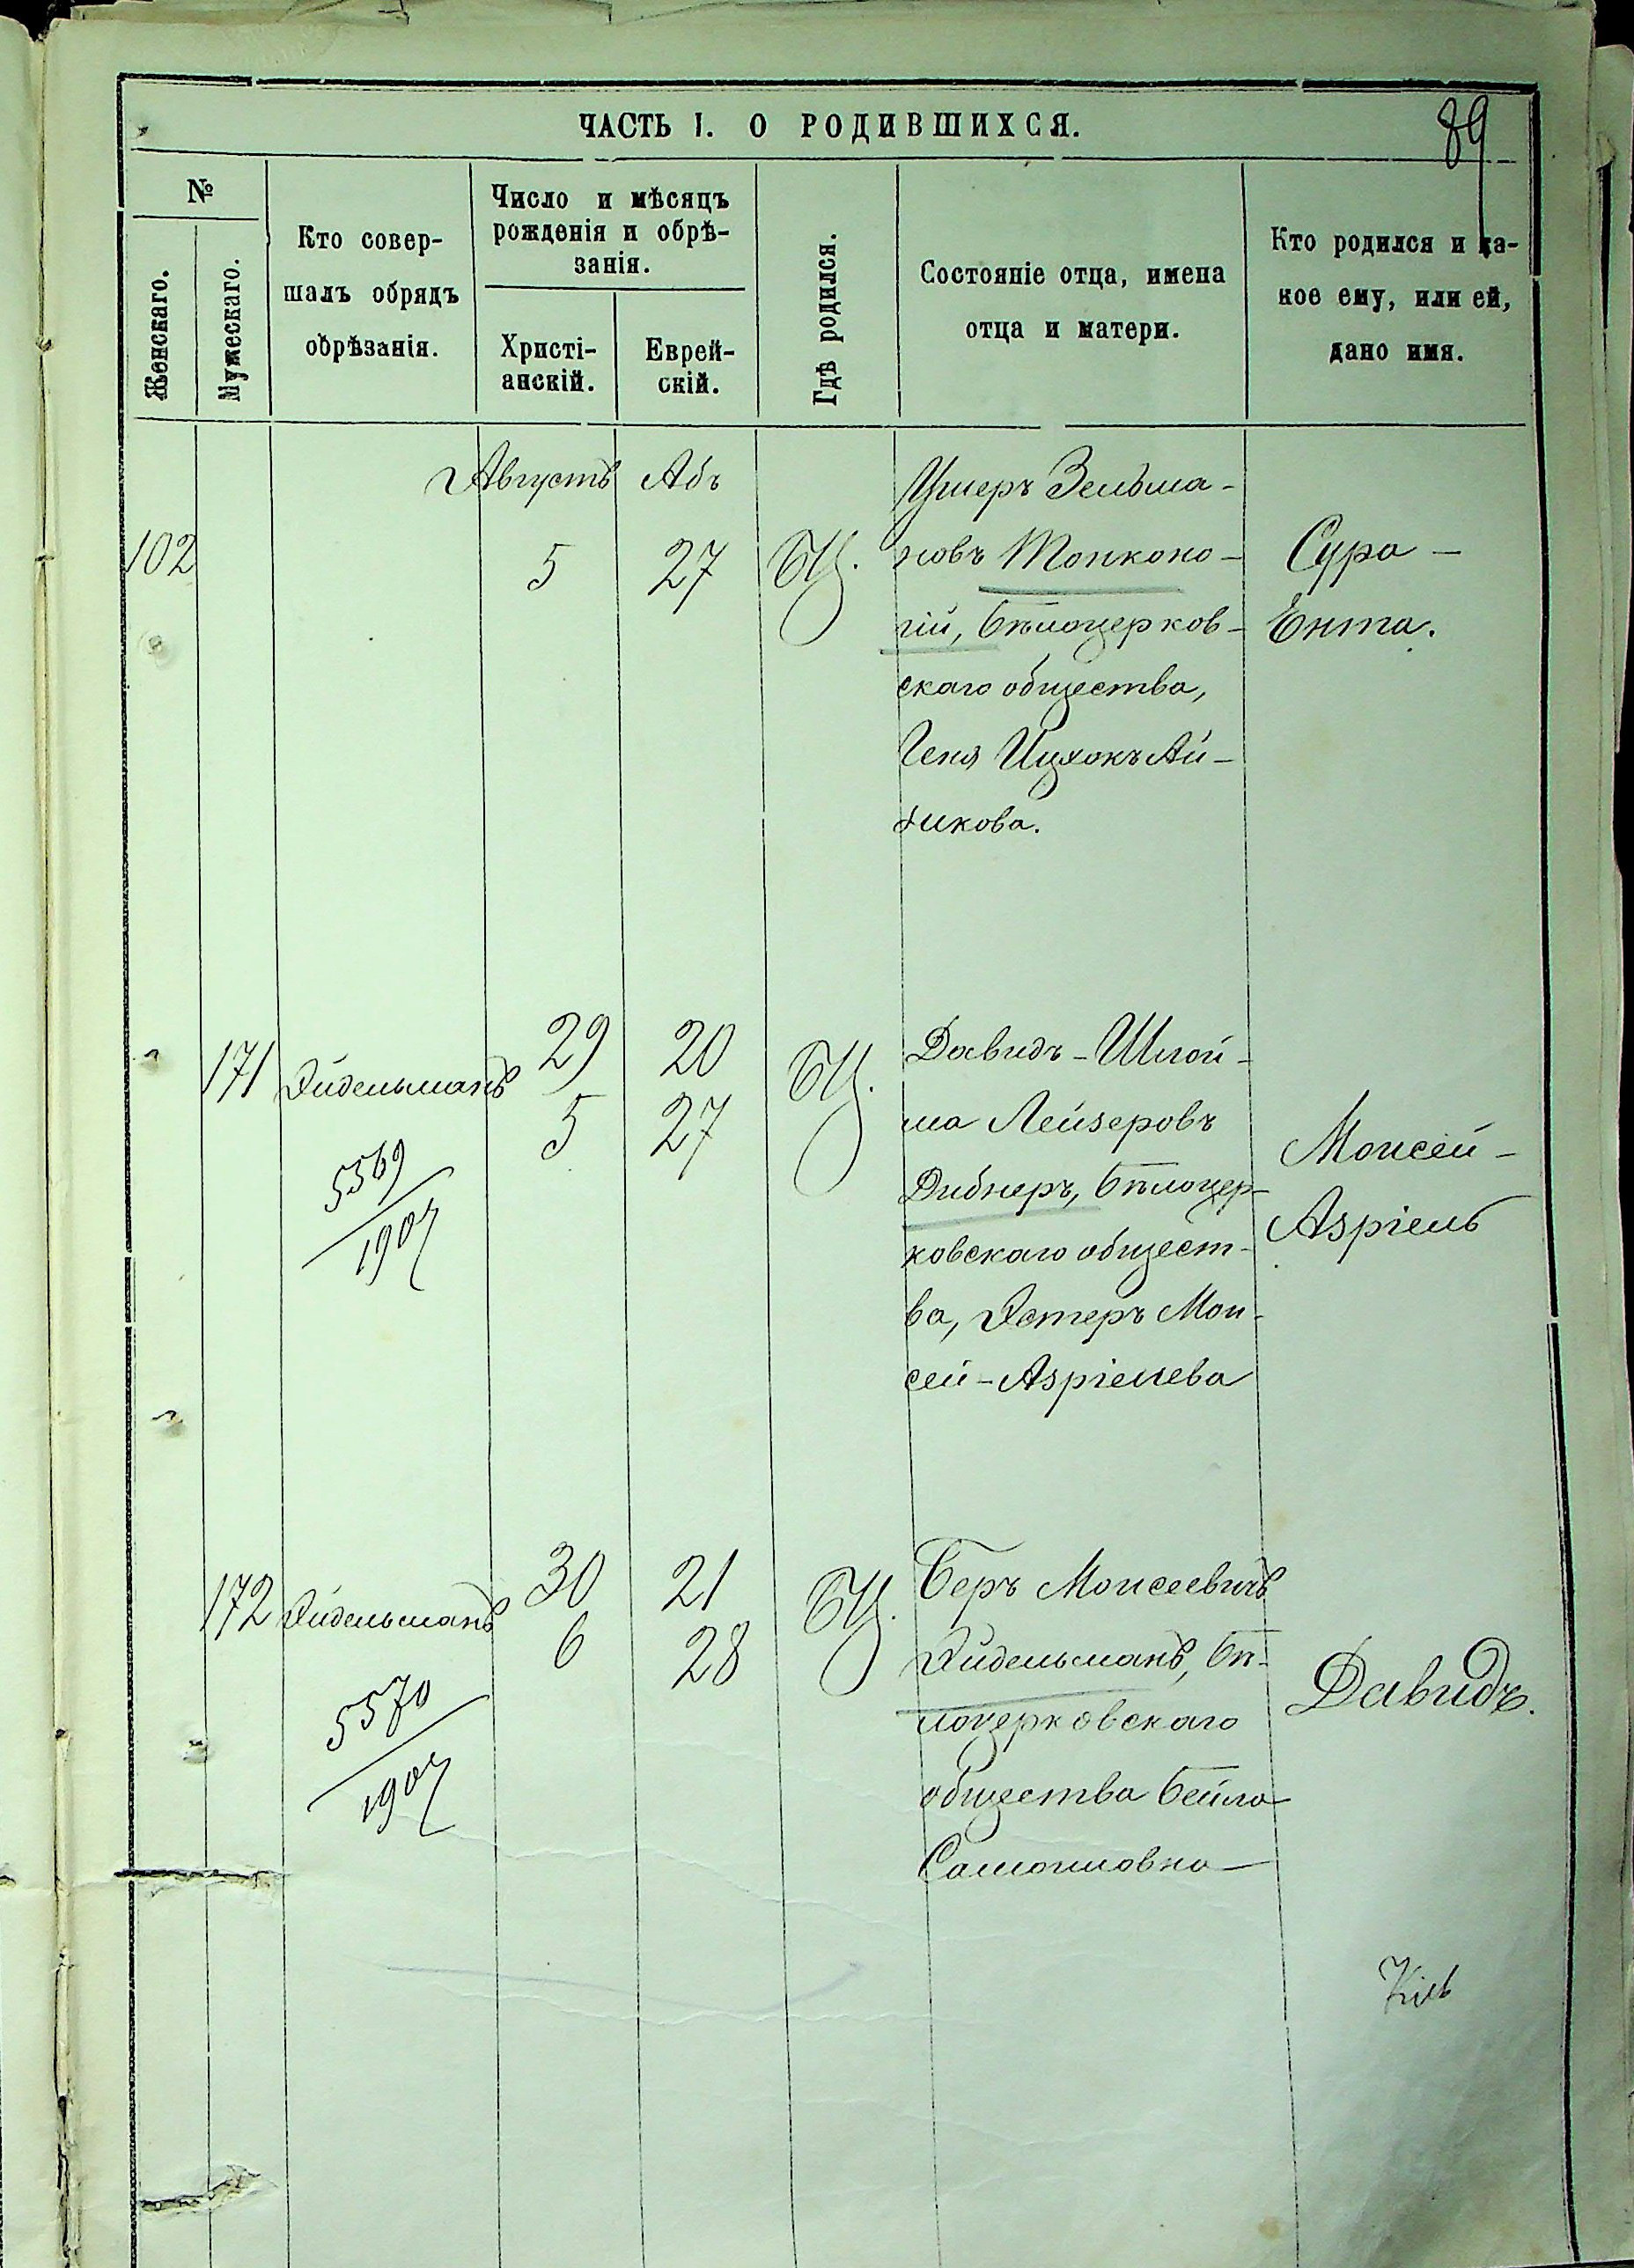 89
ЧАСТЬ I. О РОДИВШИХСЯ.
№
Женскаго.
Мужескаго.
Кто совер-
шалъ обрядъ
обрѣзанія.
Число и мѣсяцъ
рожденія и обрѣ-
занія.
Христі-
анскій.
Еврей-
скій.
Гдѣ родился.
Состояніе отца, имена
отца и матери.
Кто родился и ка-
кое ему, или ей,
дано имя.
Августъ Абъ
102
5 27
БЦ.
Ушеръ Зельма-
новъ Топконо-
гій, Бѣлоцерков-
скаго общества,
Геня Ицхокъ Ай-
зикова.
Сура -
Ента.
171 Эйдельманъ
29 20
5 27
БЦ.
5569
1907
Давидъ - Шлой-
ма Лейзеровъ
Дибнеръ, Бѣлоцер-
ковскаго общест-
ва, Эстеръ Мои-
сей - Азріелева
Моисей -
Азріель
172 Эйдельманъ
30 21
6 28
БЦ.
5570
1907
Беръ Моисеевичъ
Эйдельманъ, Бѣ-
лоцерковскаго
общества Бейла
Самоиловна
Давидъ.